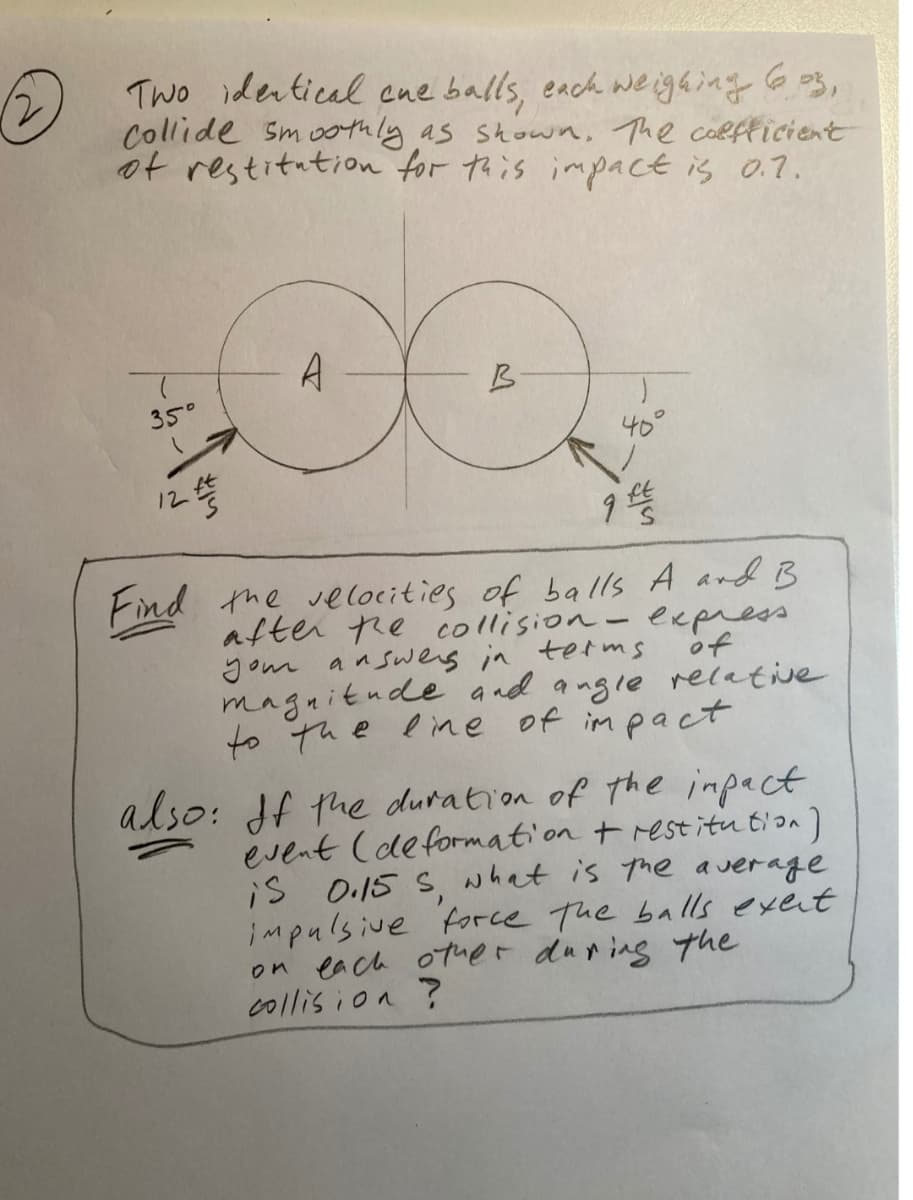 2
Two identical cue balls, each weighing 6 oz,
collide smoothly as shown. The coefficient
of restitution for this impact is 0.7.
A
B
35°
40°
12 ft/s
9 ft/s
Find the velocities of balls A and B
after the collision - express
your answers in terms of
magnitude and angle relative
to the line of impact
also: If the duration of the impact
event (deformation + restitution)
is 0.15 s, what is the average
impulsive force the balls exert
on each other during the
collision?